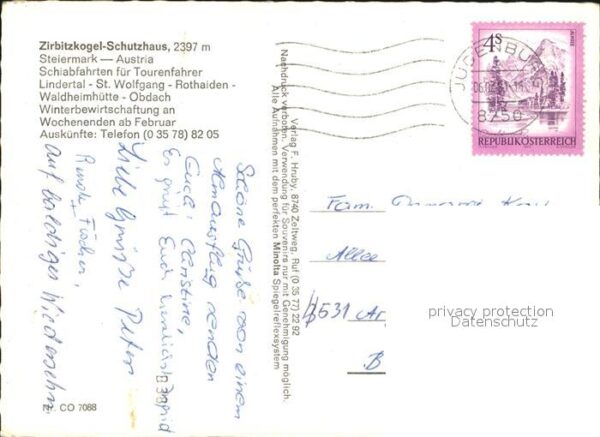 Zirbitzkogel-Schutzhaus, 2397 m
Steiermark — Austria
Schiabfahrten für Tourenfahrer
Lindertal - St. Wolfgang - Rothaiden -
Waldheimhütte - Obdach
Winterbewirtschaftung an
Wochenenden ab Februar
Auskünfte: Telefon (0 35 78) 82 05
Schöne Grüße von einem
senden
Euch Christine,
Es grüßt Euch herzlichst Ingrid
Liebe Grüsse Peter
Renate Fischer,
Auf baldiges Wiedersehn
CO 7088
Verlag F. Hruby, 8740 Zeltweg, Ruf (0 35 77) 22 92
Nachdruck verboten. Verwendung für Souvenirs nur mit Genehmigung möglich.
Alle Aufnahmen mit dem perfekten Minolta Spiegelreflexsystem
JUDENBURG
8750
4S
REPUBLIK ÖSTERREICH
Fam.
Allee
8531 Ar
B
privacy protection
Datenschutz